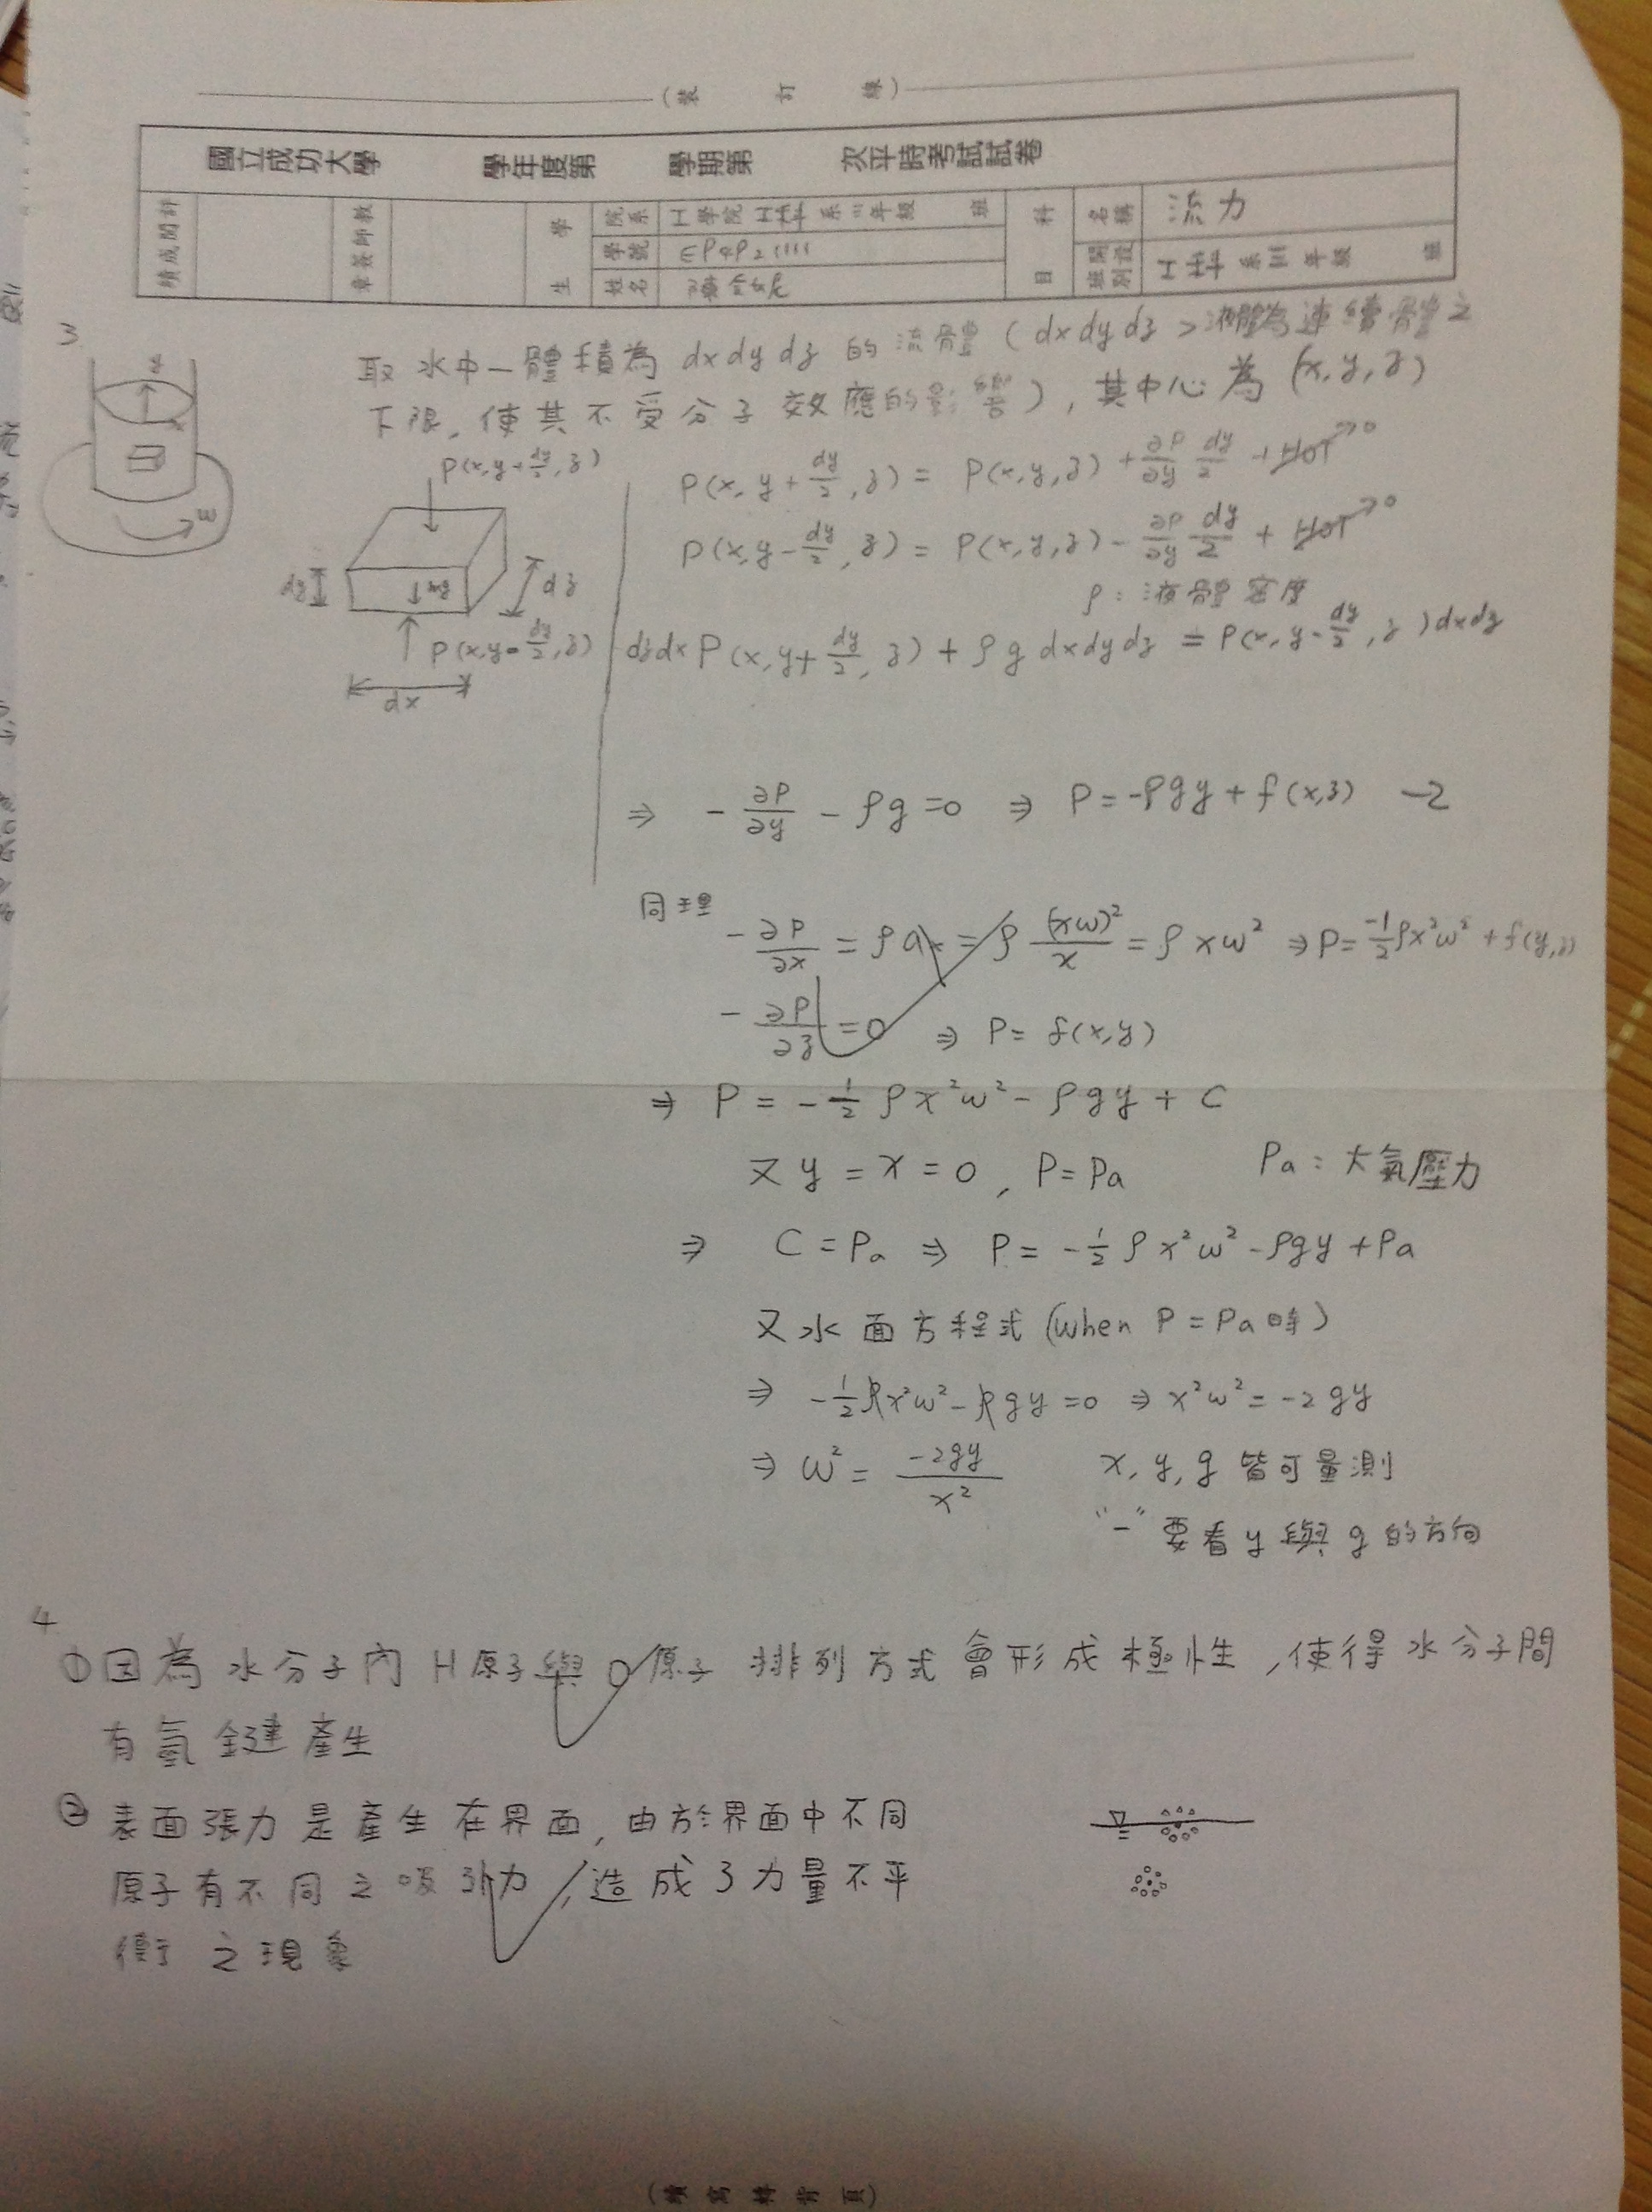 (裝 訂 線)
國立成功大學 學年度第 學期第 次平時考試試卷
學 院系 工學院 工科 系 三年級 班
科 名稱 流力
生 學號
目 開設班別 工科 系 三 年級 班
姓名
3
取水中一體積為 dxdydz 的流體 (dxdydz > 液體為連續體之
下限, 使其不受分子效應的影響), 其中心為 (x,y,z)
ω
P(x,y+dy/2,z)
P(x, y+dy/2, z) = P(x,y,z) + ∂P/∂y dy/2 + HOT→0
P(x,y-dy/2, z) = P(x,y,z) - ∂P/∂y dy/2 + HOT→0
dy
mg
dz
ρ: 液體密度
P(x,y-dy/2,z)
dx
dzdx P(x,y+dy/2, z) + ρg dxdydz = P(x,y-dy/2,z) dxdz
⇒ -∂P/∂y - ρg = 0 ⇒ P = -ρgy + f(x,z) -2
同理
-∂P/∂x = ρax = ρ (xω)²/x = ρxω² ⇒ P = -1/2 ρx²ω² + f(y,z)
-∂P/∂z = 0 ⇒ P = f(x,y)
⇒ P = -1/2 ρx²ω² - ρgy + C
又 y = x = 0, P = Pa Pa: 大氣壓力
⇒ C = Pa ⇒ P = -1/2 ρx²ω² - ρgy + Pa
又水面方程式 (when P = Pa 時)
⇒ -1/2 ρx²ω² - ρgy = 0 ⇒ x²ω² = -2gy
⇒ ω² = -2gy/x² x, y, g 皆可量測
"-" 要看 y 與 g 的方向
4
① 因為水分子內 H原子與 O原子 排列方式會形成極性, 使得水分子間
有氫鍵產生
② 表面張力是產生在界面, 由於界面中不同
原子有不同之吸引力, 造成了力量不平
衡之現象
(續寫轉背頁)